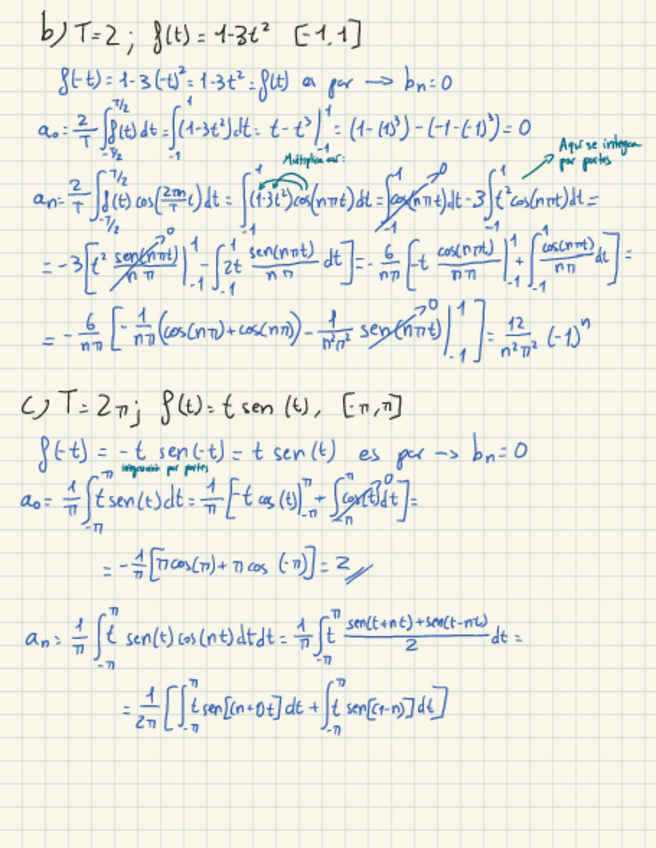 b) T=2 ; f(t) = 1-3t² [-1,1]
f(-t) = 1-3(-t)² = 1-3t² = f(t) es par → bn=0
a₀ = 2/T ∫_{-T/2}^{T/2} f(t) dt = ∫_{-1}^{1} (1-3t²) dt = t - t³ |_{-1}^{1} = (1-(1)³) - (-1-(-1)³) = 0
Aquí se integra por partes
Multiplicar:
an = 2/T ∫_{-T/2}^{T/2} f(t) cos(2πn/T t) dt = ∫_{-1}^{1} (1-3t²) cos(nπt) dt = ∫_{-1}^{1} cos(nπt) dt →0 - 3 ∫_{-1}^{1} t² cos(nπt) dt =
= -3 [ t² sen(nπt)/nπ →0 |_{-1}^{1} - ∫_{-1}^{1} 2t sen(nπt)/nπ dt ] = - 6/nπ [ -t cos(nπt)/nπ |_{-1}^{1} + ∫_{-1}^{1} cos(nπt)/nπ dt ] =
= - 6/nπ [ - 1/nπ (cos(nπ) + cos(nπ)) - 1/n²π² sen(nπt) →0 |_{-1}^{1} ] = 12/n²π² (-1)ⁿ
c) T=2π; f(t) = t sen(t), [-π,π]
f(-t) = -t sen(-t) = t sen(t) es par → bn=0
integración por partes
a₀ = 1/π ∫_{-π}^{π} t sen(t) dt = 1/π [ -t cos(t) |_{-π}^{π} + ∫_{-π}^{π} cos(t) dt →0 ] =
= - 1/π [π cos(π) + π cos(-π)] = 2
an = 1/π ∫_{-π}^{π} t sen(t) cos(nt) dt dt = 1/π ∫_{-π}^{π} t sen(t+nt)+sen(t-nt)/2 dt =
= 1/2π [ ∫_{-π}^{π} t sen[(n+1)t] dt + ∫_{-π}^{π} t sen[(1-n)] dt ]